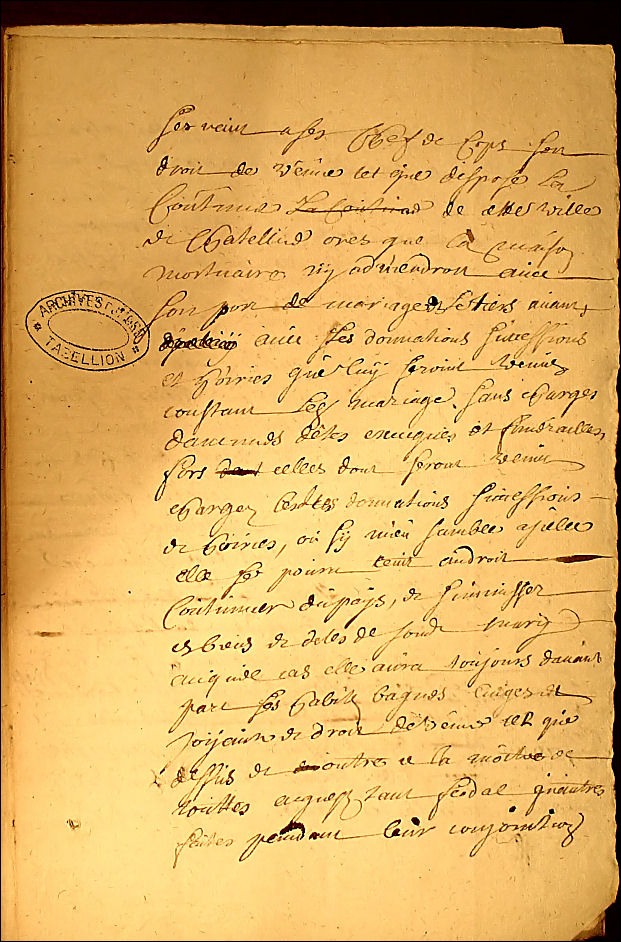 ARCHIVES
TABELLION
droit de veuve tel que dispose la
Coutume de ville
de Chatellin ores que la maison
mortuaire n'y adviendroit avec
son port de mariage
avec les donnations successions
et hoiries que luy seroint venus
constant le mariage sans charges
d'aucunes dettes et funerailles
fors celles dont seront venus
chargez donnations successions
de hoiries, où sy mieu samble
elle se pourra tenir au droit
Coutumier du pays, de s'immisser
es biens de dettes de mary
auquel cas elle aura toujours davant
part ses habits bagues linges et
joyaux de droit de veuve tel que
dessus de outre la moitié de
touttes acquest tant feodal qu'autres
faites pendant leur conjonction